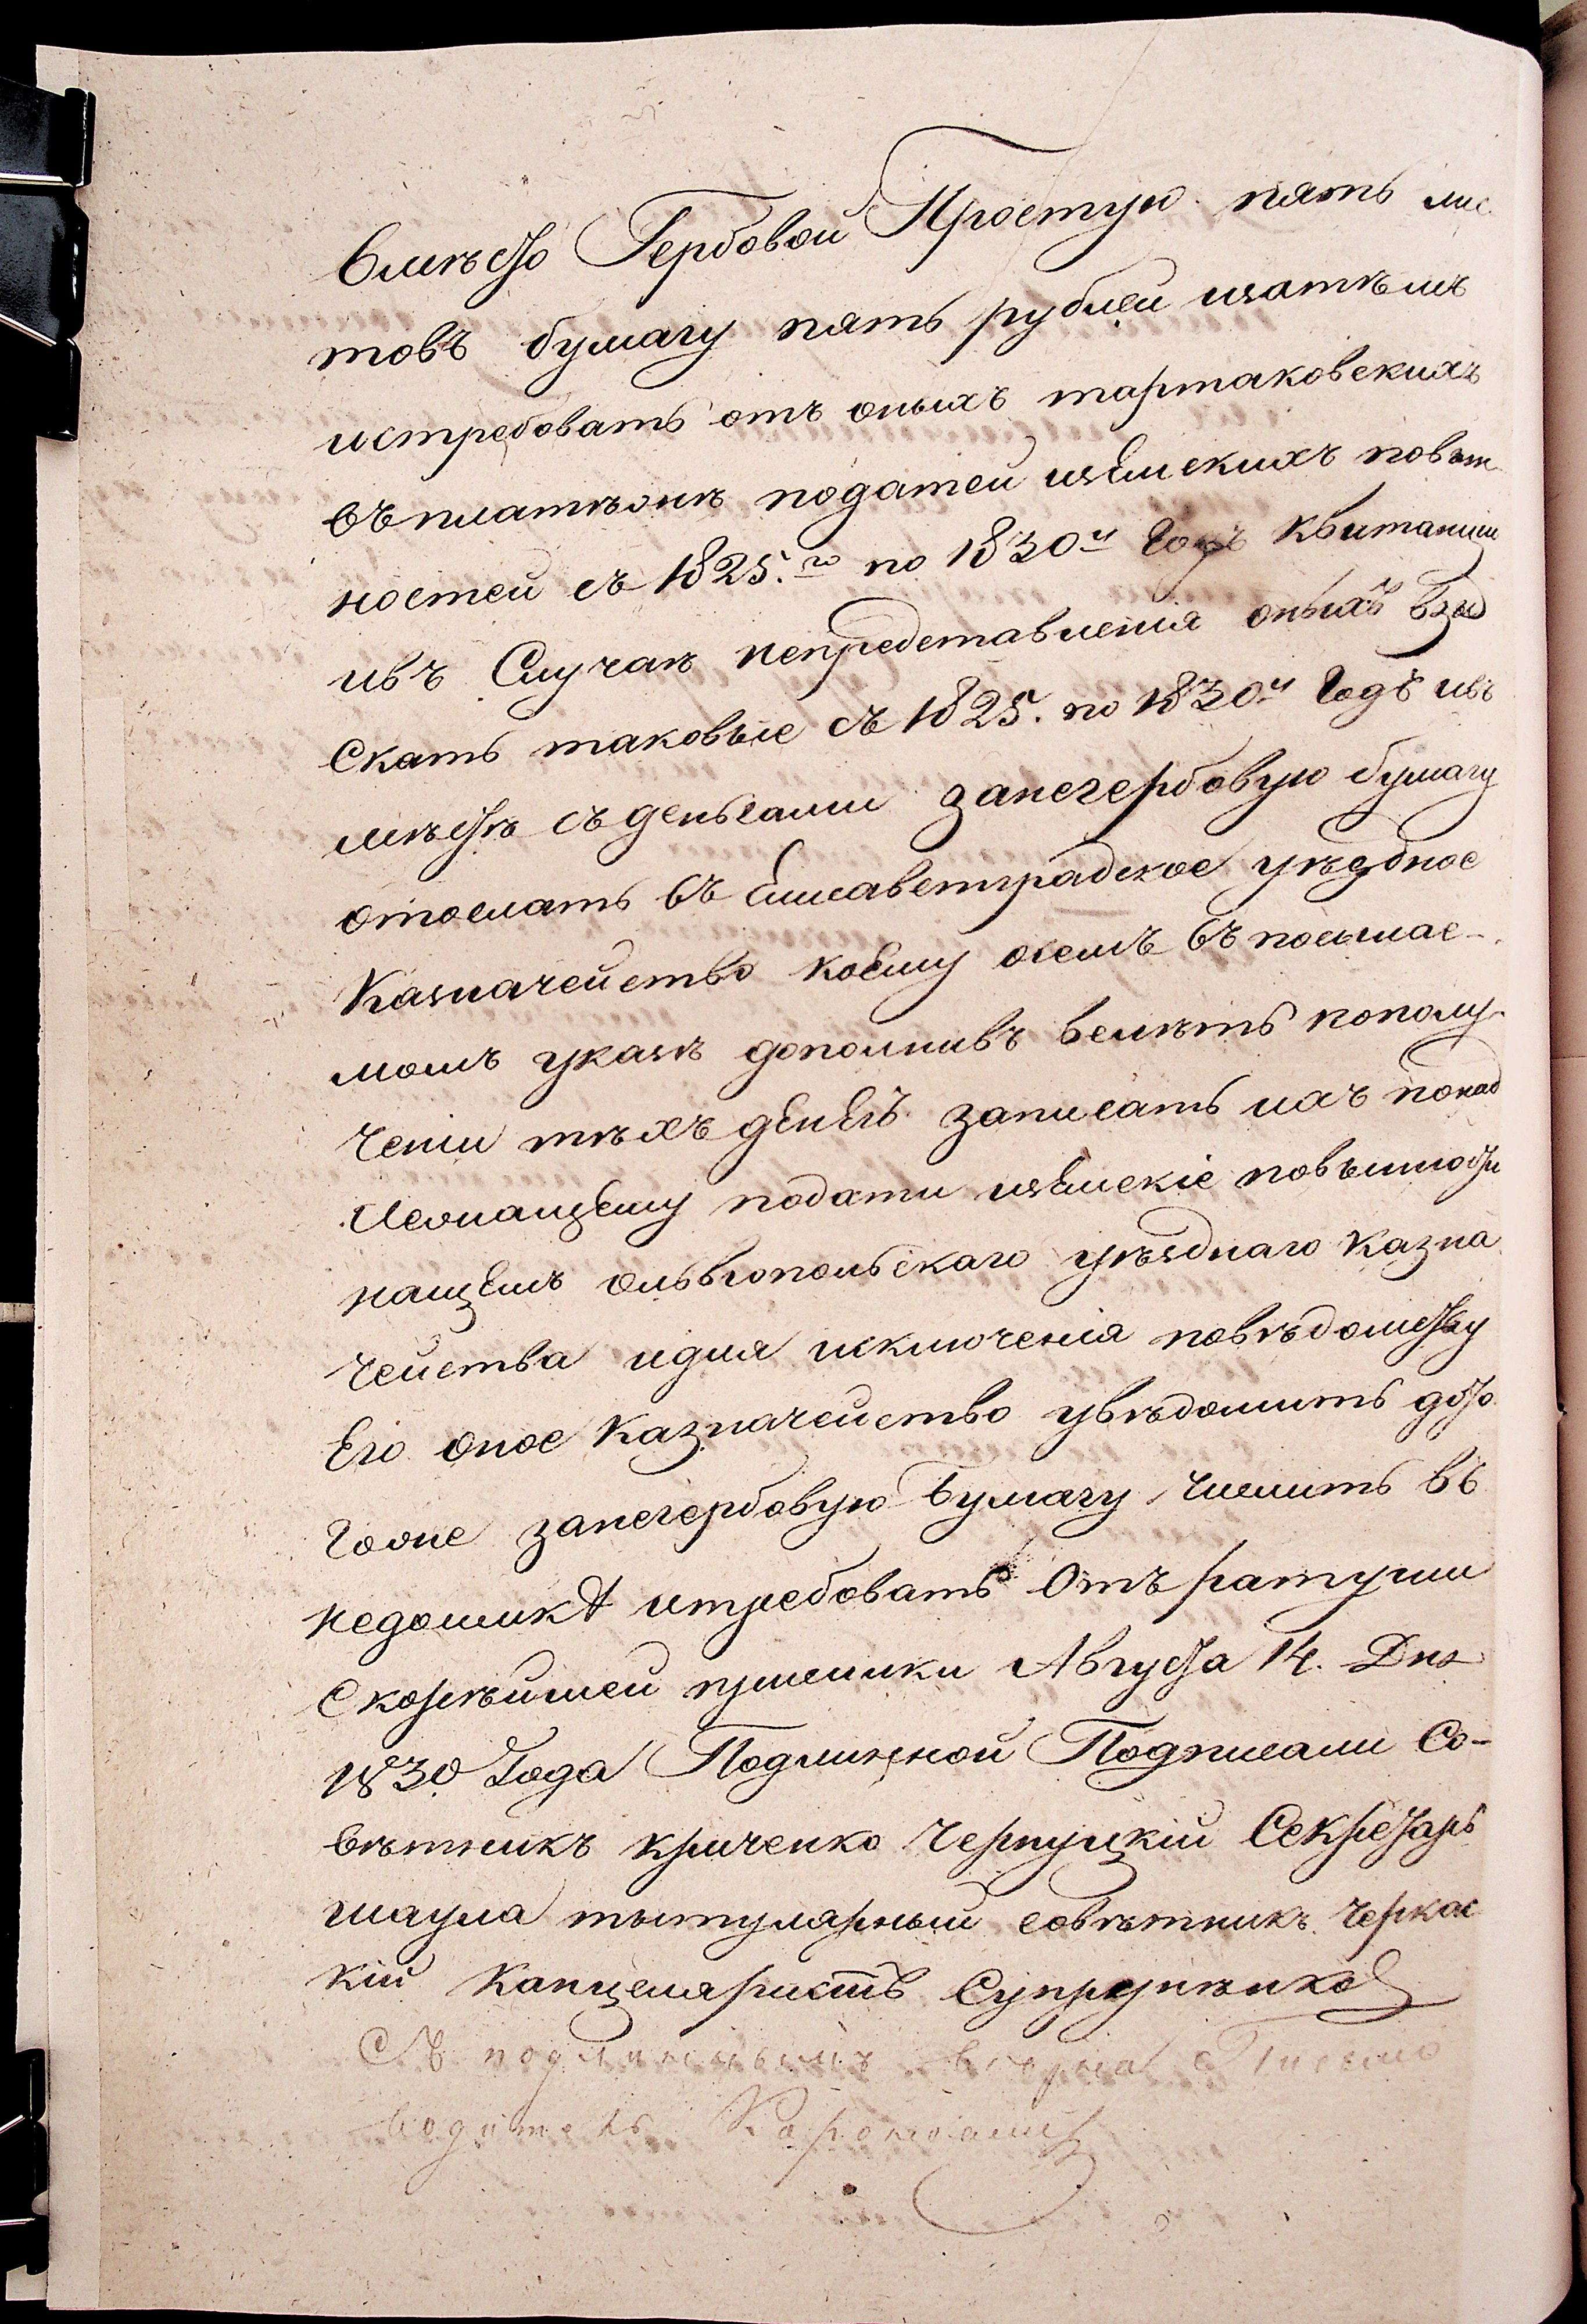 вмѣсто Гербовой Простую пять лис
товъ бумагу пять рублей изатѣмъ
истребовать отъ оныхъ тартаковскихъ
въ платѣжѣ податей изЕмскихъ повин
ностей съ 1825.го по 1830й Годъ Квитанции
ивъ Случаѣ непредставленія оныхъ взы
Скать таковые съ 1825. по 1830й Годъ ивъ
мѣстѣ съ деньгами занегербовую бумагу
отослать въ Елисаветградское уѣздное
Казначейство коЕму осемъ въ посылае-
момъ указѣ дополнивъ велѣть пополу
ченіи тѣхъ дЕнЕгъ записать ихъ понад
лежащЕму подати изЕмскіе повинности
нащЕтъ ольвіопольскаго уѣзднаго Казна
чейства идля исключенія повѣдомству
Его оное Казначейство увѣдомить досто
Гоже занегербовую Бумагу числить въ
недоимкѣ итребовать Отъ ратуши
Скорѣйшей присылки Августа 14. Дня
1830 Года Подлинной Подписали Со-
вѣтникъ криченко Чернуцкій Секретарь
шаула тытулярный совѣтникъ Черкас
кій Канцеляристъ Супруненко
Съ подлиннымъ вѣрна Письмо
водитель